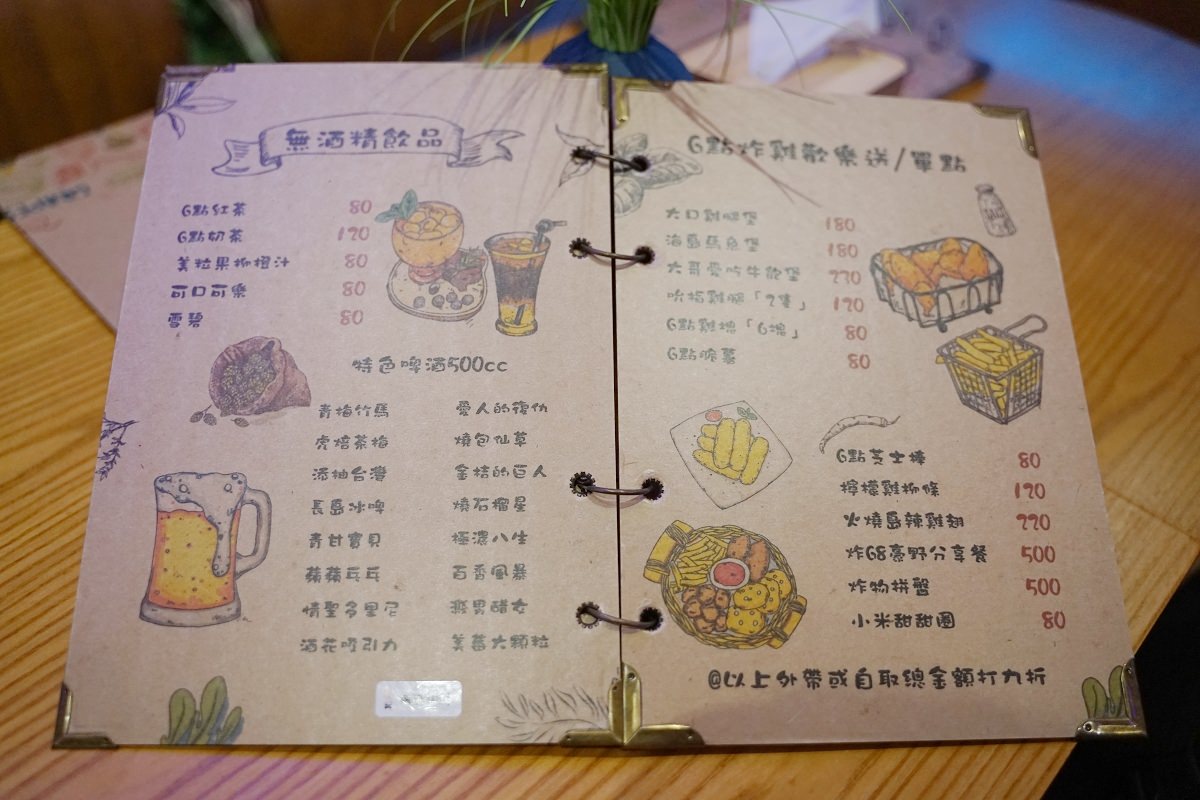 無酒精飲品
G點紅茶 80
G點奶茶 120
美粒果柳橙汁 80
可口可樂 80
雪碧 80
特色啤酒500cc
青梅竹馬 愛人的復仇
虎焙茶梅 燒包仙草
添柚台灣 金桔的巨人
長島冰啤 燒石榴星
青甘寶貝 極濃八生
蘋蘋乒乓 百香風暴
情聖多里尼 醋女
酒花吸引力 美莓大顆粒
G點炸雞歡樂送/單點
大口雞腿堡 180
海島馬魚堡 180
大哥愛吃牛肥堡 220
吮指雞腿「2隻」 120
G點雞塊「6塊」 80
G點脆薯 80
G點芝士棒 80
檸檬雞柳條 120
火燒島辣雞翅 220
炸G8豪野分享餐 500
炸物拼盤 500
小米甜甜圈 80
@以上外帶或自取總金額打九折